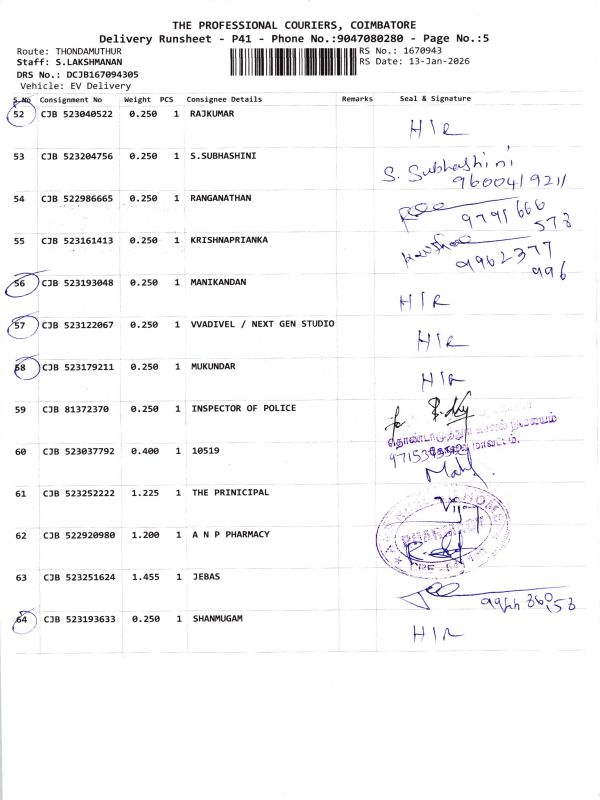 THE PROFESSIONAL COURIERS, COIMBATORE
Delivery Runsheet - P41 - Phone No.:9047080280 - Page No.:5
Route: THONDAMUTHUR RS No.: 1670943
Staff: S.LAKSHMANAN RS Date: 13-Jan-2026
DRS No.: DCJB167094305
Vehicle: EV Delivery
S.No Consignment No Weight PCS Consignee Details Remarks Seal & Signature
52 CJB 523040522 0.250 1 RAJKUMAR
H/R
53 CJB 523204756 0.250 1 S.SUBHASHINI
S. Subhashini
9600419211
54 CJB 522986665 0.250 1 RANGANATHAN
9791666
578
55 CJB 523161413 0.250 1 KRISHNAPRIANKA
9962377
996
56 CJB 523193048 0.250 1 MANIKANDAN
H/R
57 CJB 523122067 0.250 1 VVADIVEL / NEXT GEN STUDIO
H/R
58 CJB 523179211 0.250 1 MUKUNDAR
H/R
59 CJB 81372370 0.250 1 INSPECTOR OF POLICE
60 CJB 523037792 0.400 1 10519
61 CJB 523252222 1.225 1 THE PRINICIPAL
62 CJB 522920980 1.200 1 A N P PHARMACY
63 CJB 523251624 1.455 1 JEBAS
64 CJB 523193633 0.250 1 SHANMUGAM
H/R